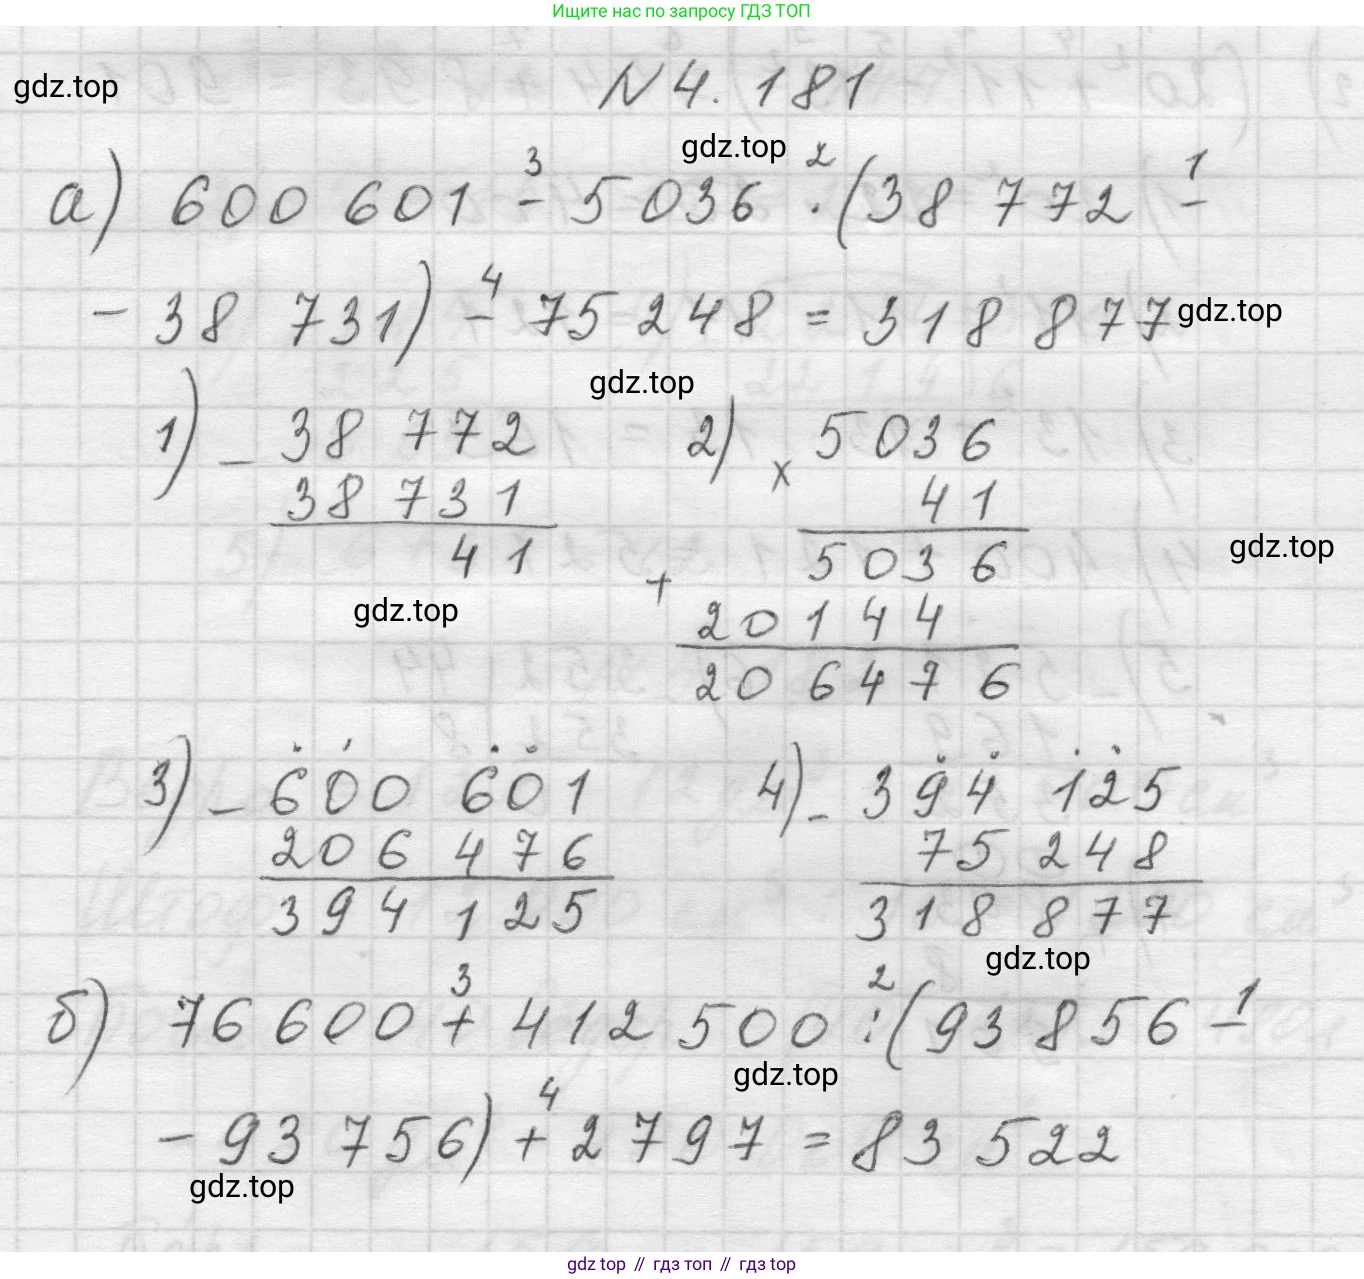 Ищите нас по запросу ГДЗ ТОП
gdz.top
N 4. 181
gdz.top
а) 600 601 - 5 036 · (38 772 -
3 2 1
- 38 731) - 75 248 = 318 877
4
gdz.top
gdz.top
1) - 38 772
38 731
41
gdz.top
2) x 5036
41
gdz.top
+ 5036
20144
206476
3) - 600 601
206 476
394 125
4) - 394 125
75 248
318 877
gdz.top
б) 76 600 + 412 500 : (93 856 -
3 2 1
gdz.top
- 93 756) + 2 797 = 83 522
4
gdz.top
gdz.top // гдз топ // гдз top